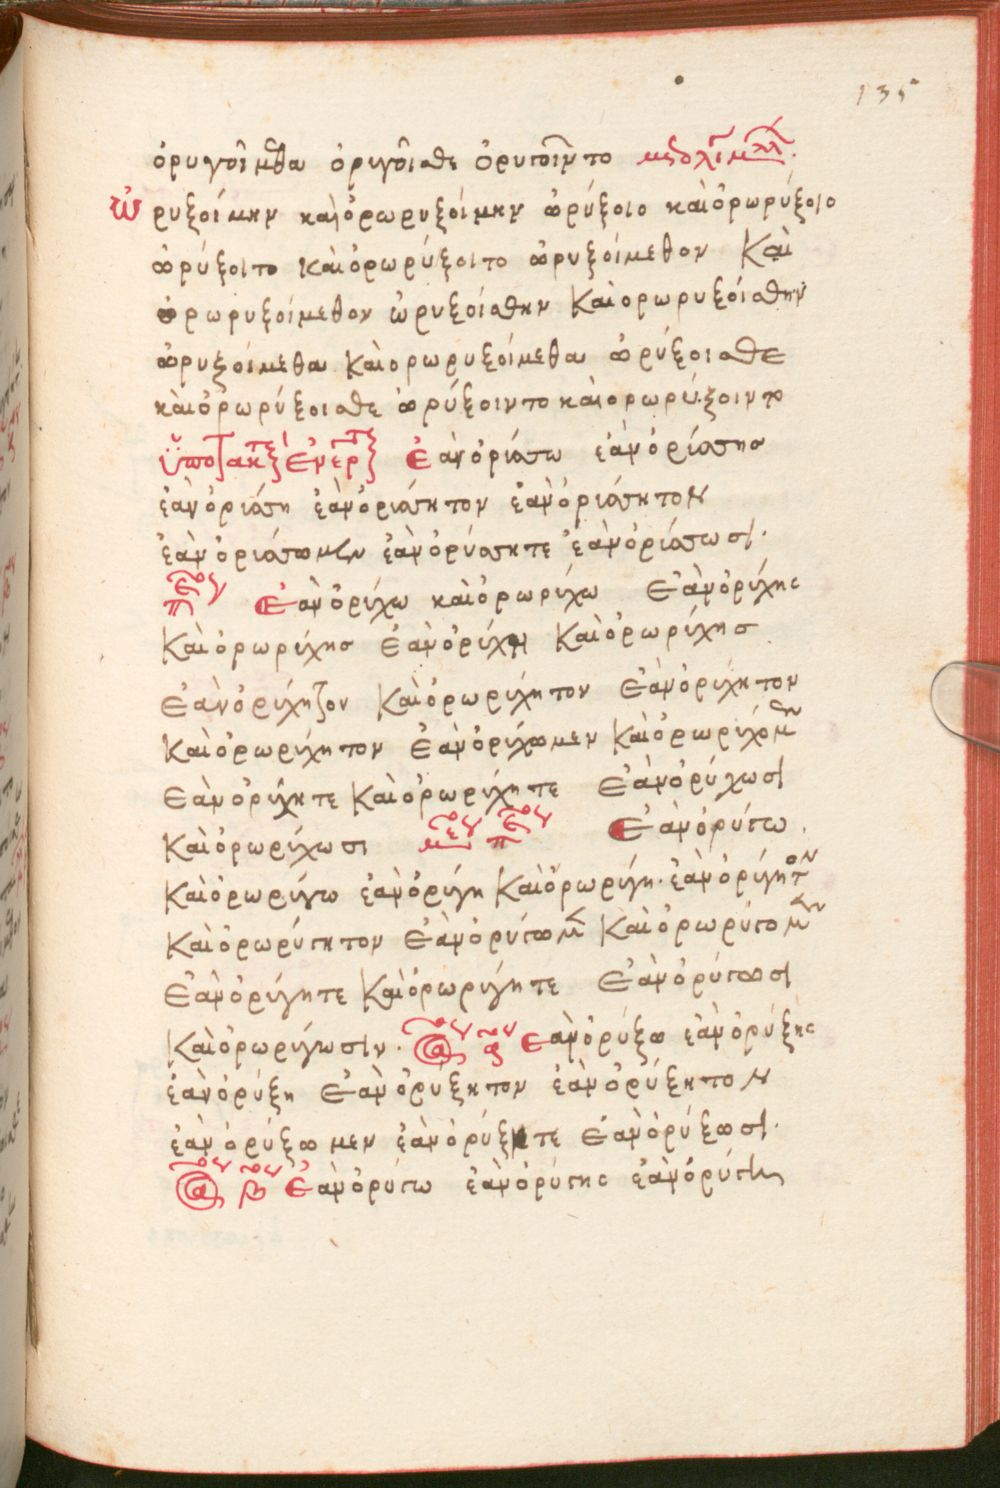 135
ὀρυγοίμεθα ὀριγοῖσθε ὀρυγοῖντο μετολίγμέλλ.
Ὠρυξοίμην καὶ ὀρωρυξοίμην ὠρύξοιο καὶ ὀρωρύξοιο
ὠρύξοιτο καὶ ὀρωρύξοιτο ὠρυξοίμεθον Καὶ
ὀρωρυξοίμεθον ὠρυξοίσθην Καὶ ορωρυξοίσθην
ὠρυξοίμεθα Καὶ ορωρυξοίμεθα ὠρύξοισθε
καὶ ὀρωρύξοισθε ὠρύξοιντο καὶ ορωρύξοιντο
Ὑποτακτ Ἐνεστ Ἐὰν ὀρίσσω ἐὰν ὀρίσσης
ἐὰν ὀρίσση ἐὰν ὀρίσσητον ἐὰν ὀρίσσητον
ἐὰν ὀρίσσωμεν ἐὰν ὀρύσσητε ἐὰν ὀρίσσωσι.
Ἐὰν ὀρίχω καὶ ὀρωρίχω Ἐὰν ὀρίχης
Καὶ ὀρωρίχης Ἐὰν ὀρίχη Καὶ ὀρωρίχης
Ἐὰν ὀρίχητον Καὶ ὀρωρίχητον Ἐὰν ὀρίχητον
Καὶ ὀρωρίχητον Ἐὰν ὀρίχωμεν Καὶ ὀρωρίχομεν
Ἐὰν ὀρίχητε Καὶ ὀρωρίχητε Ἐὰν ὀρύχωσι
Καὶ ὀρωρίχωσι Ἐὰν ὀρύγω.
Καὶ ὀρωρίγω ἐὰν ὀρίγη Καὶ ὀρωρίγη. ἐὰν ὀρίγητον
Καὶ ὀρωρύγητον Ἐὰν ὀρύγωμεν Καὶ ὀρωρύγομεν
Ἐὰν ὀρίγητε Καὶ ὀρωρίγητε Ἐὰν ὀρύγωσι
Καὶ ὀρωρίγωσιν. Ἐὰν ὀρύξω ἐὰν ὀρύξης
ἐὰν ὀρύξη Ἐὰν ὀρύξητον ἐὰν ὀρύξητον
ἐὰν ὀρύξωμεν ἐὰν ὀρύξητε Ἐὰν ὀρύξωσι.
Ἐὰν ὀρύγω ἐὰν ὀρύγης ἐὰν ὀρύγη